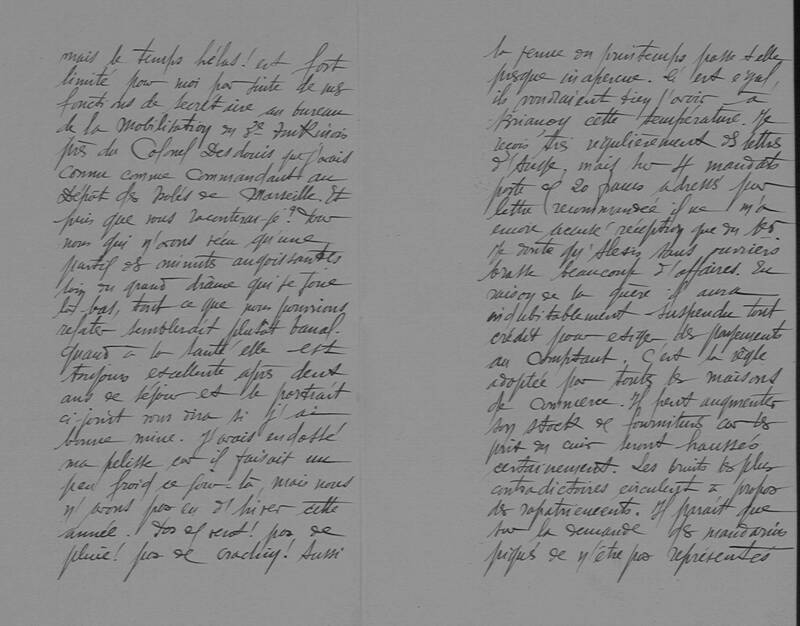 mais le temps hélas! est fort
limité pour moi par suite de mes
fonctions de secrétaire au bureau
de la Mobilisation du 3e Tonkinois
près du Colonel Desdouis que j'avais
connu comme Commandant au
Dépôt des Isolés de Marseille. Et
puis que vous raconterai-je? Pour
nous qui n'avons vécu qu'une
partie des minutes angoissantes
loin du grand drame qui se joue
là-bas, tout ce que nous pourrions
relater semblerait plutôt banal.
Quand à la santé elle est
toujours excellente après deux
ans de séjour et le portrait
ci-joint vous dira si j'ai
bonne mine. J'avais endossé
ma pelisse car il faisait un
peu froid ce jour-là, mais nous
n'avons pas eu d'hiver cette
année. Pas de vent! pas de
pluie! pas de crachin! Aussi
la venue du printemps passe-t-elle
presque inaperçue. C'est égal,
ils voudraient bien l'avoir à
Briançon cette température. Je
reçois très régulièrement des lettres
mais sur 4 mandats
poste de 20 francs adressés par
lettre recommandée il ne m'a
encore accusé réception que du
Je doute qu' sans ouvriers
brasse beaucoup d'affaires. En
raison de la guerre il aura
indubitablement suspendu tout
crédit pour exiger des payements
au Comptant. C'est la règle
adoptée par toutes les maisons
de Commerce. Il peut augmenter
son stock de fournitures car les
prix du cuir seront haussés
certainement. Les bruits les plus
contradictoires circulent à propos
des rapatriements. Il paraît que
sur la demande des mandarins
piqués de n'être pas représentés